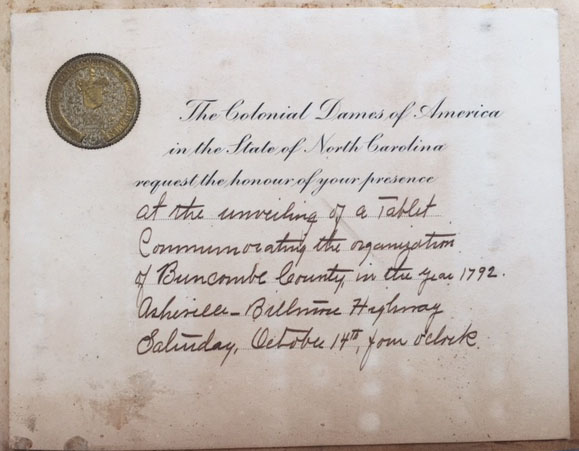 The Colonial Dames of America
in the State of North Carolina
request the honour of your presence
at the unveiling of a Tablet
Commemorating the organization
of Buncombe County, in the year 1792.
Asheville-Biltmore Highway
Saturday, October 14th, four o'clock.